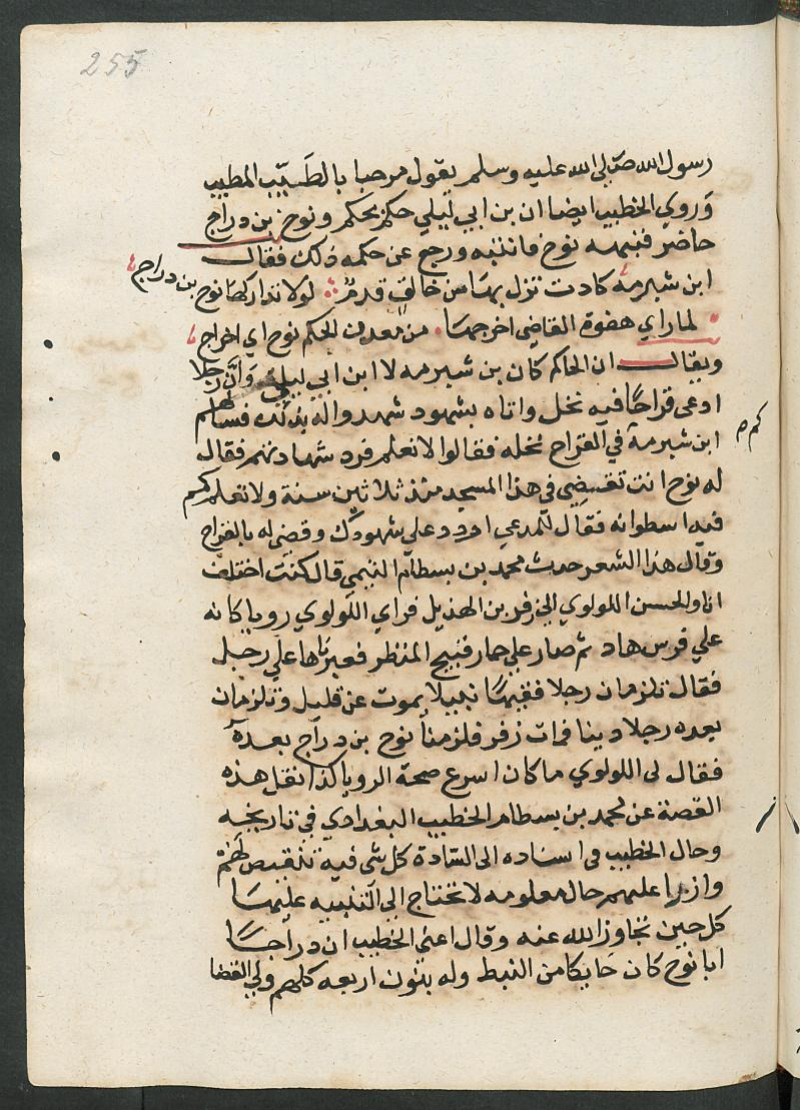 255
رسول الله صلى الله عليه وسلم يقول مرحبا بالطيب المطيب
وروي الخطيب ايضا ان بن ابي ليلي حكم بحكم ونوح بن دراج
حاضر فنبهه نوح فانتبه ورجع عن حكمه ذلك فقال
ابن شبرمه كادت تزل بها من حالق قدم لولا تداركها نوح بن دراج
لما راي هفوة القاضي اخرجها من معدن الحكم نوح اي اخراج
ويقال ان الحاكم كان بن شبرمه لا ابن ابي ليلي وان رجلا
ادعى قراحا فيه نخل واتاه بشهود شهدوا له بذلك فسالهم
ابن شبرمة في القراح نخله فقالوا لا نعلم فرد شهادتهم فقال
كم ه
له نوح انت تقضي في هذا المسجد منذ ثلاثين سنة ولا تعلم كم
فيه اسطوانه فقال للمدعي اردد علي شهودك وقضي له بالقراح
وقال هذا الشعر حدث محمد بن بسطام التيمي قال كنت اختلف
انا والحسن اللولوي الي زفر بن الهذيل فراي اللولوي رويا كانه
علي فرس هاد ثم صار علي حمار قبيح المنظر فعبرناها علي رجل
فقال تلزمان رجلا فقيها نبيلا يموت عن قليل وتلزمان
بعده رجلا دينا فمات زفر فلزمنا نوح بن دراج بعده
فقال لي اللولوي ما كان اسرع صحة الرويا كذا نقل هذه
القصة عن محمد بن بسطام الخطيب البغدادي في تاريخه
وحال الخطيب في اسناده الى السادة كل شي فيه تنقيص لهم
وازرا عليهم حال معلومه لا تحتاج الي التنبيه عليها
كل حين تجاوز الله عنه وقال اعني الخطيب ان دراجا
ابا نوح كان حايكا من النبط وله بنون اربعه كلهم ولي القضا